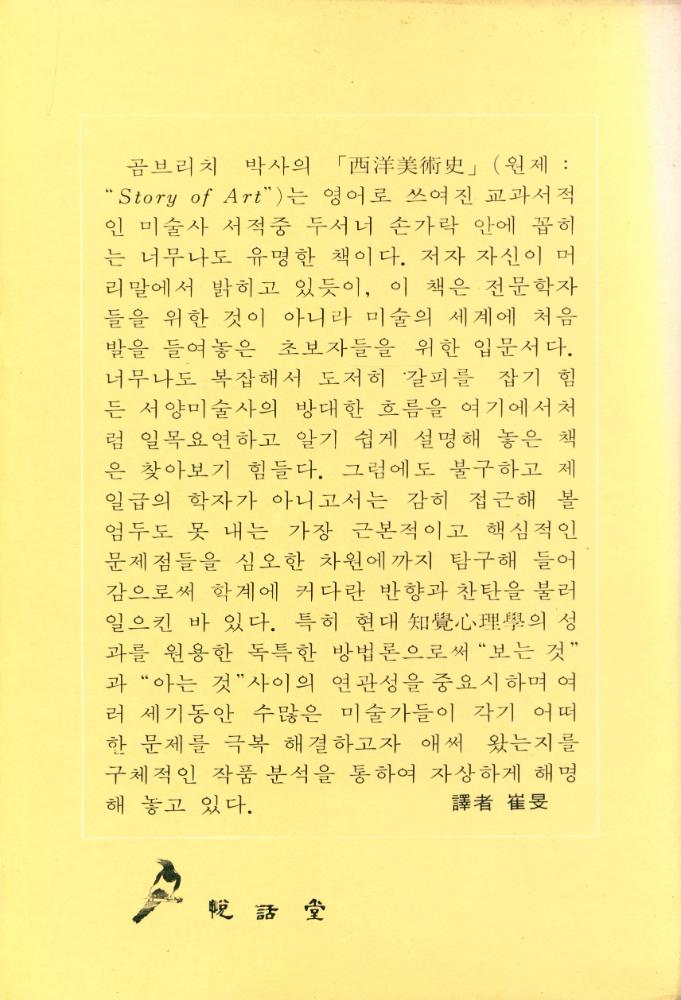 곰브리치 박사의 「西洋美術史」(원제 :
“Story of Art”)는 영어로 쓰여진 교과서적
인 미술사 서적중 두서너 손가락 안에 꼽히
는 너무나도 유명한 책이다. 저자 자신이 머
리말에서 밝히고 있듯이, 이 책은 전문학자
들을 위한 것이 아니라 미술의 세계에 처음
발을 들여놓은 초보자들을 위한 입문서다.
너무나도 복잡해서 도저히 갈피를 잡기 힘
든 서양미술사의 방대한 흐름을 여기에서처
럼 일목요연하고 알기 쉽게 설명해 놓은 책
은 찾아보기 힘들다. 그럼에도 불구하고 제
일급의 학자가 아니고서는 감히 접근해 볼
엄두도 못 내는 가장 근본적이고 핵심적인
문제점들을 심오한 차원에까지 탐구해 들어
감으로써 학계에 커다란 반향과 찬탄을 불러
일으킨 바 있다. 특히 현대 知覺心理學의 성
과를 원용한 독특한 방법론으로써 “보는 것”
과 “아는 것”사이의 연관성을 중요시하며 여
러 세기동안 수많은 미술가들이 각기 어떠
한 문제를 극복 해결하고자 애써 왔는지를
구체적인 작품 분석을 통하여 자상하게 해명
해 놓고 있다. 譯者 崔旻
悅話堂